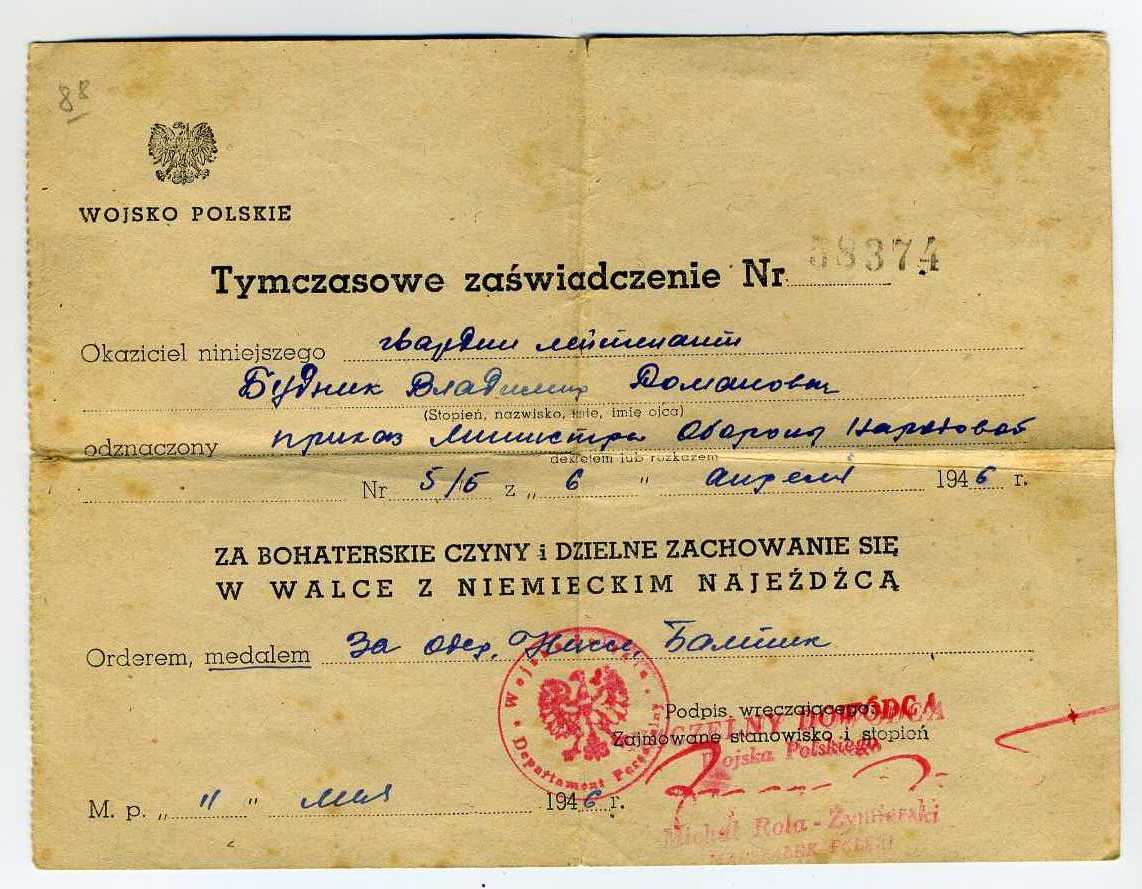 88
WOJSKO POLSKIE
Tymczasowe zaświadczenie Nr 38374
Okaziciel niniejszego гвардии лейтенант
Будник Владимир Романович
(Stopień, nazwisko, imię, imię ojca)
odznaczony приказ Министра Обороны
dekretem lub rozkazem
Nr 5/Б z „ 6 " апреля 1946 r.
ZA BOHATERSKIE CZYNY i DZIELNE ZACHOWANIE SIĘ
W WALCE Z NIEMIECKIM NAJEŹDŹCĄ
Orderem, medalem За Одер, Нисс, Балтик
Wojska Departament Personalny
Podpis wręczającego:
CZELNY DOWÓDCA
Zajmowane stanowisko i stopień
Wojska Polskiego
M. p. „ 11 " мая 1946 r.
Michał Rola - Żymierski
MARSZAŁEK POLSKI